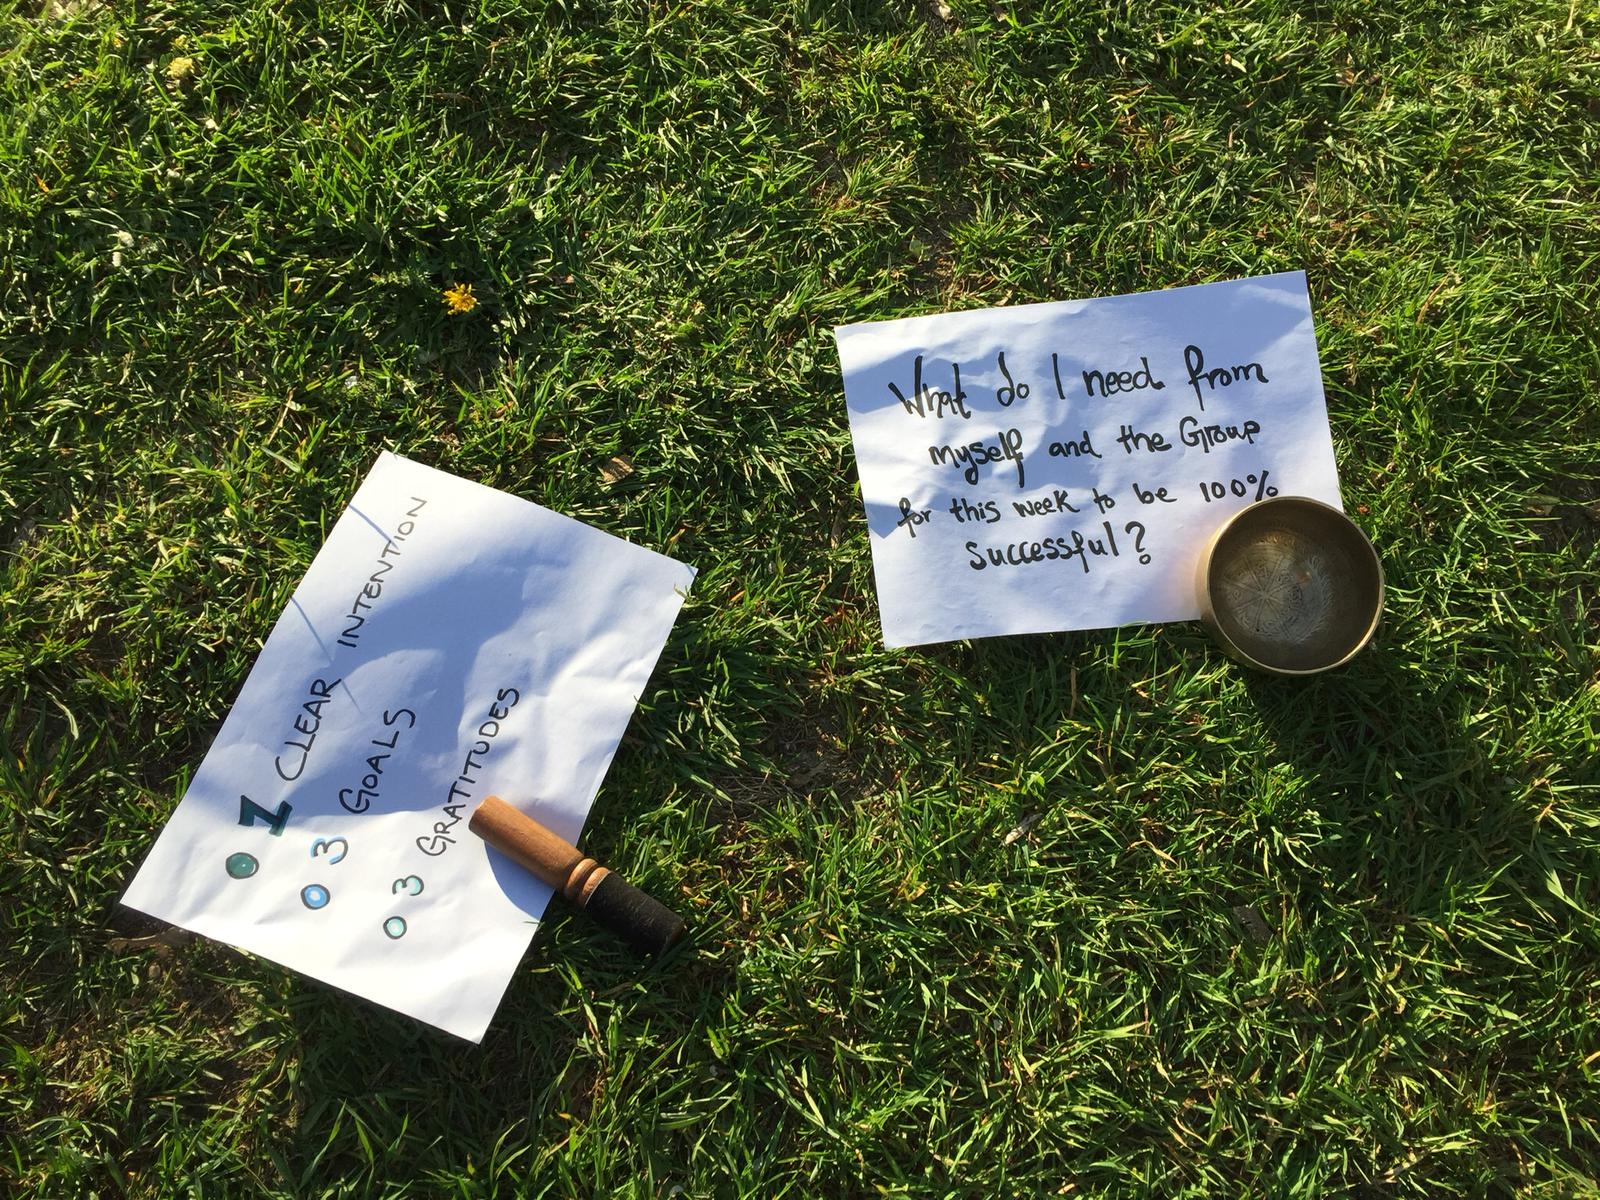 1 CLEAR INTENTION
3 GOALS
3 GRATITUDES
What do I need from
myself and the Group
for this week to be 100%
Successful?